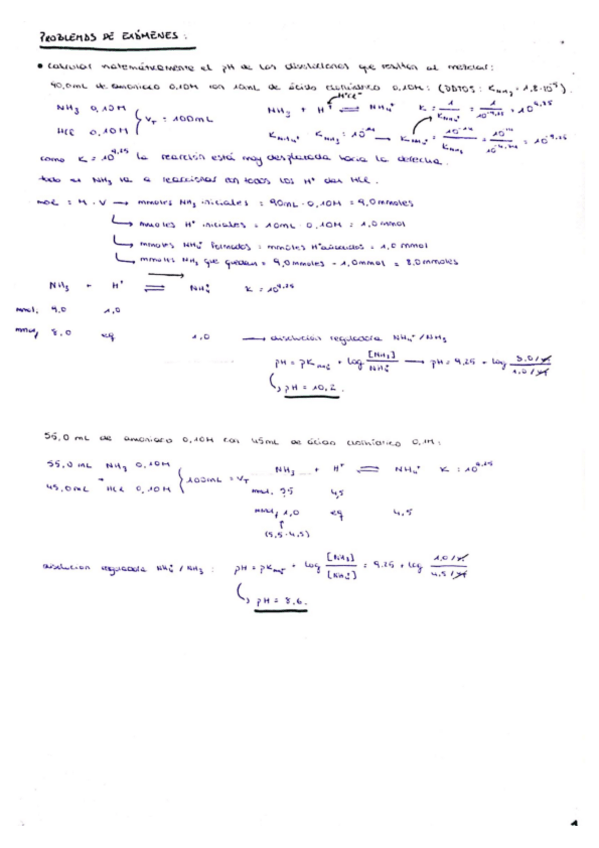 PROBLEMAS DE EXÁMENES:
• Calcular matemáticamente el pH de las disoluciones que resultan al mezclar:
90,0mL de amoniaco 0,10M con 10mL de ácido clorhídrico 0,10M: (DATOS: K_NH₃ = 1,8·10⁻⁵).
NH₃ 0,10M
HCl 0,10M
V_T = 100mL
NH₃ + H⁺ ⇌ NH₄⁺
como K = 10^9,25 la reacción está muy desplazada hacia la derecha.
todo el NH₃ va a reaccionar con todos los H⁺ del HCl.
mol = M · V → mmoles NH₃ iniciales = 90mL · 0,10M = 9,0mmoles
↳ mmoles H⁺ iniciales = 10mL · 0,10M = 1,0mmol
↳ mmoles NH₄⁺ formados = mmoles H⁺ = 1,0 mmol
↳ mmoles NH₃ que quedan = 9,0mmoles - 1,0mmol = 8,0mmoles
NH₃ + H⁺ ⇌ NH₄⁺ K = 10^9,25
9,0 1,0
8,0 eq 1,0 → disolución reguladora NH₄⁺/NH₃
pH = 10,2.
55,0 mL de amoniaco 0,10M con 45mL de ácido clorhídrico 0,1M:
55,0mL NH₃ 0,10M
45,0mL HCl 0,10M
100mL = V_T
NH₃ + H⁺ ⇌ NH₄⁺ K = 10^9,25
4,5
1,0 eq 4,5
(5,5-4,5)
disolución reguladora NH₄⁺/NH₃: pH = pK_NH₄⁺ + log [NH₃]/[NH₄⁺] = 9,25 + log
pH = 8,6.